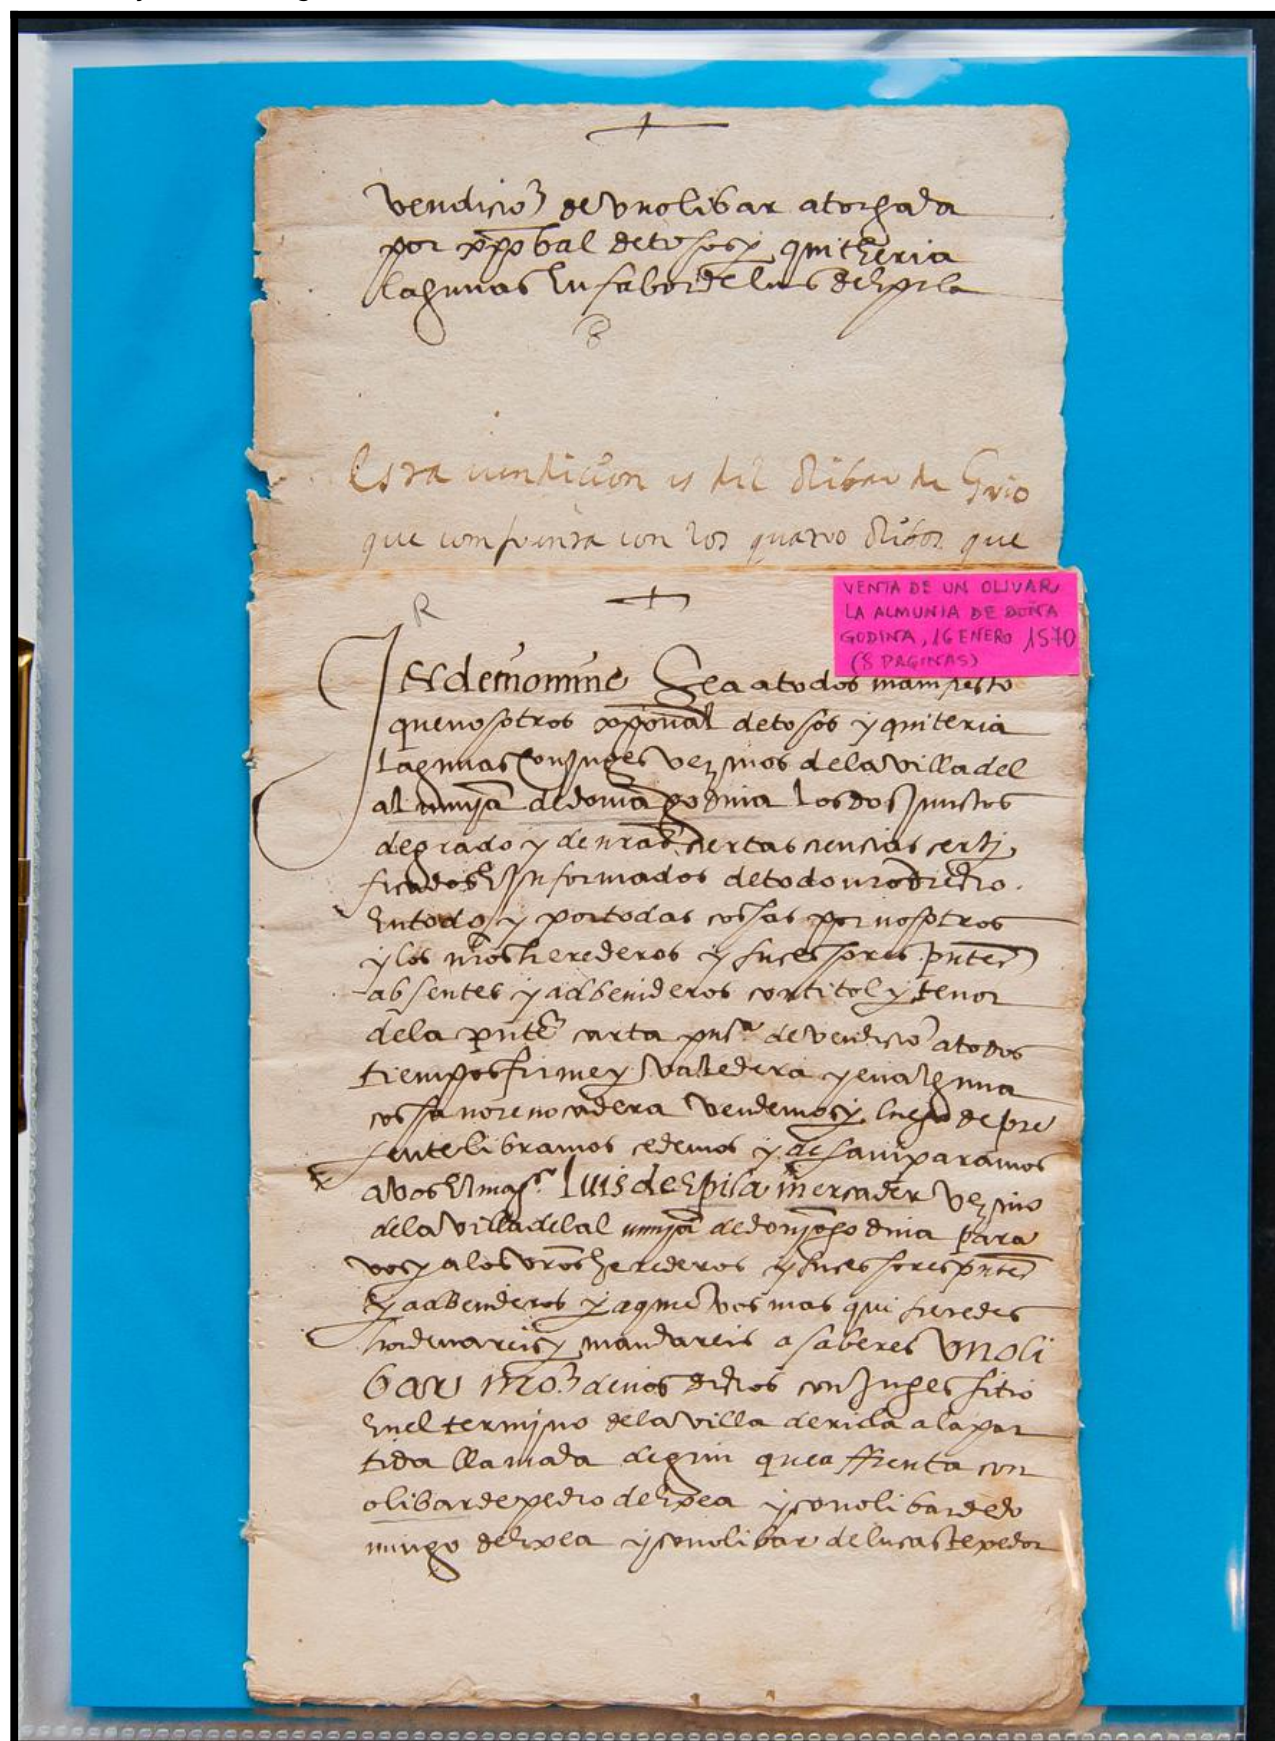 vendicion de un olibar atorgada
por xpobal de tosos y quitheria
lagunas en fabor de luis de Epila
Esta vendicion es del olibar de Grio
que confrenta con los quatro olibos que
R
VENTA DE UN OLIVAR
LA ALMUNIA DE DOÑA
GODINA, 16 ENERO 1570
(8 PAGINAS)
In dei nomine Sea a todos manifiesto
que nosotros xpoval de tosos y quiteria
lagunas conjuges vezinos de la villa del
almunja de dona godina los dos junctos
de grado y de nras ciertas ciencias certi
ficados E informados de todo nro drecho
En todo y por todas cossas por nosotros
y los nros herederos y sucessores pntes
absentes y adbenideros con titol y tenor
de la pnte carta puca de vendicio a todos
tiempos firme y valedera y en alguna
cossa no revocadera vendemos y luego de pre
sente libramos cedemos y desamparamos
a vos El magco luis de Epila mercader vezino
de la villa del almunja de donya godina para
vos y a los vros herederos y sucessores pntes
y adbenideros y a qui vos mas quisieredes
hordenareis y mandareis a saber es un oli
bar nro de nos dichos conjuges sitio
En el termino de la villa de ricla a la par
tida llamada de grio que affrenta con
olibar de pedro de Exea y con olibar de do
mingo de Exea y con olibar de lucas texedor